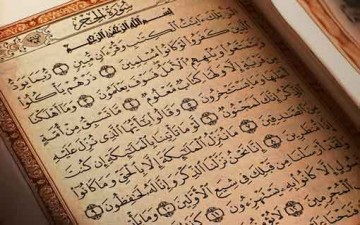 سورة الحجر
بسم الله الرحمن الرحيم
تلك ءايت الكتب وقرءان مبين ۝ ربما يود
الذين كفروا لو كانوا مسلمين ۝ ذرهم يأكلوا
ويتمتعوا ويلههم الأمل فسوف يعلمون ۝ وما أهلكنا
من قرية إلا ولها كتاب معلوم ۝ ما تسبق من أمة
أجلها وما يستءخرون ۝ وقالوا يأيها الذي نزل عليه
الذكر إنك لمجنون ۝ لو ما تأتينا بالملئكة إن كنت
من الصدقين ۝ ما ننزل الملئكة إلا بالحق وما كانوا
إذا منظرين ۝ إنا نحن نزلنا الذكر وإنا له لحفظون ۝
أرسلنا من قبلك في شيع الأولين ۝ وما يأتيهم
إلا كانوا به يستهزءون ۝ كذلك نسلكه
المجرمين ۝ لا يؤمنون